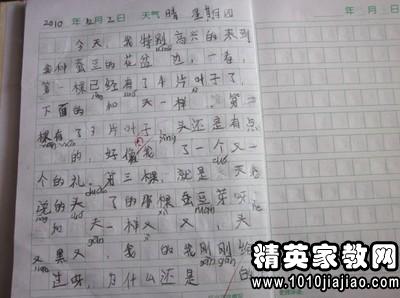 2010年12月2日 天气 晴 星期四
今天，我特别高兴的来到
去种蚕豆的花盆边，一看，
第一棵已经有了4片叶子了，
下面的 和 天一样，第
棵有了3片叶子， 头还是有点
的，好像我 了一个又一
个的礼，第三棵，就是 天
说的头 了的那棵蚕豆芽呀，
和 天一样又 又 ，头
又黑又 ，我 的我刚刚给
过呀，为什么还是 的
年 月 日
精英家教网
www.1010jiajiao.com